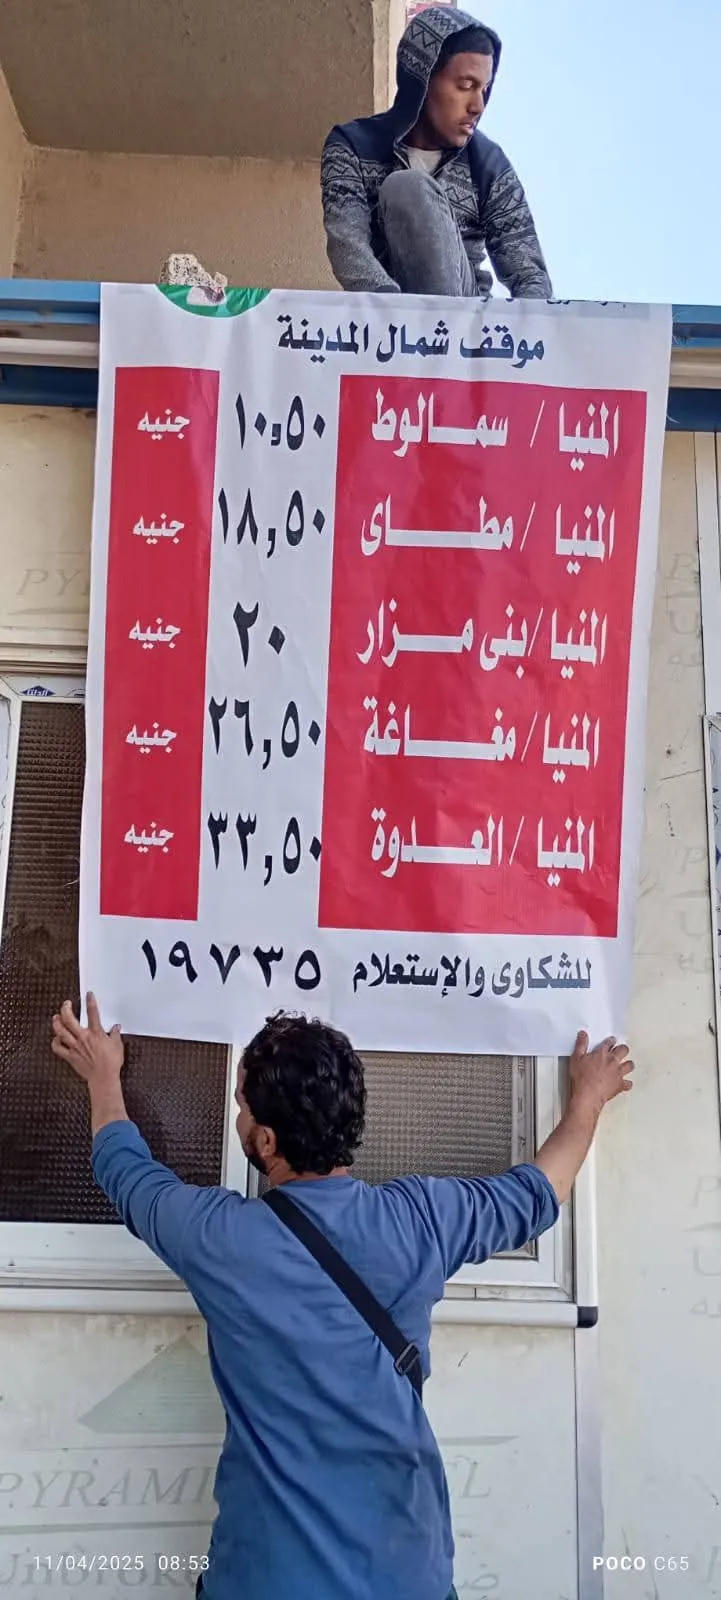 موقف شمال المدينة
المنيا / سمالوط ١٠,٥٠ جنيه
المنيا / مطاى ١٨,٥٠ جنيه
المنيا / بنى مزار ٢٠ جنيه
المنيا / مغاغة ٢٦,٥٠ جنيه
المنيا / العدوة ٣٣,٥٠ جنيه
للشكاوى والإستعلام ١٩٧٣٥
11/04/2025 08:53
POCO C65